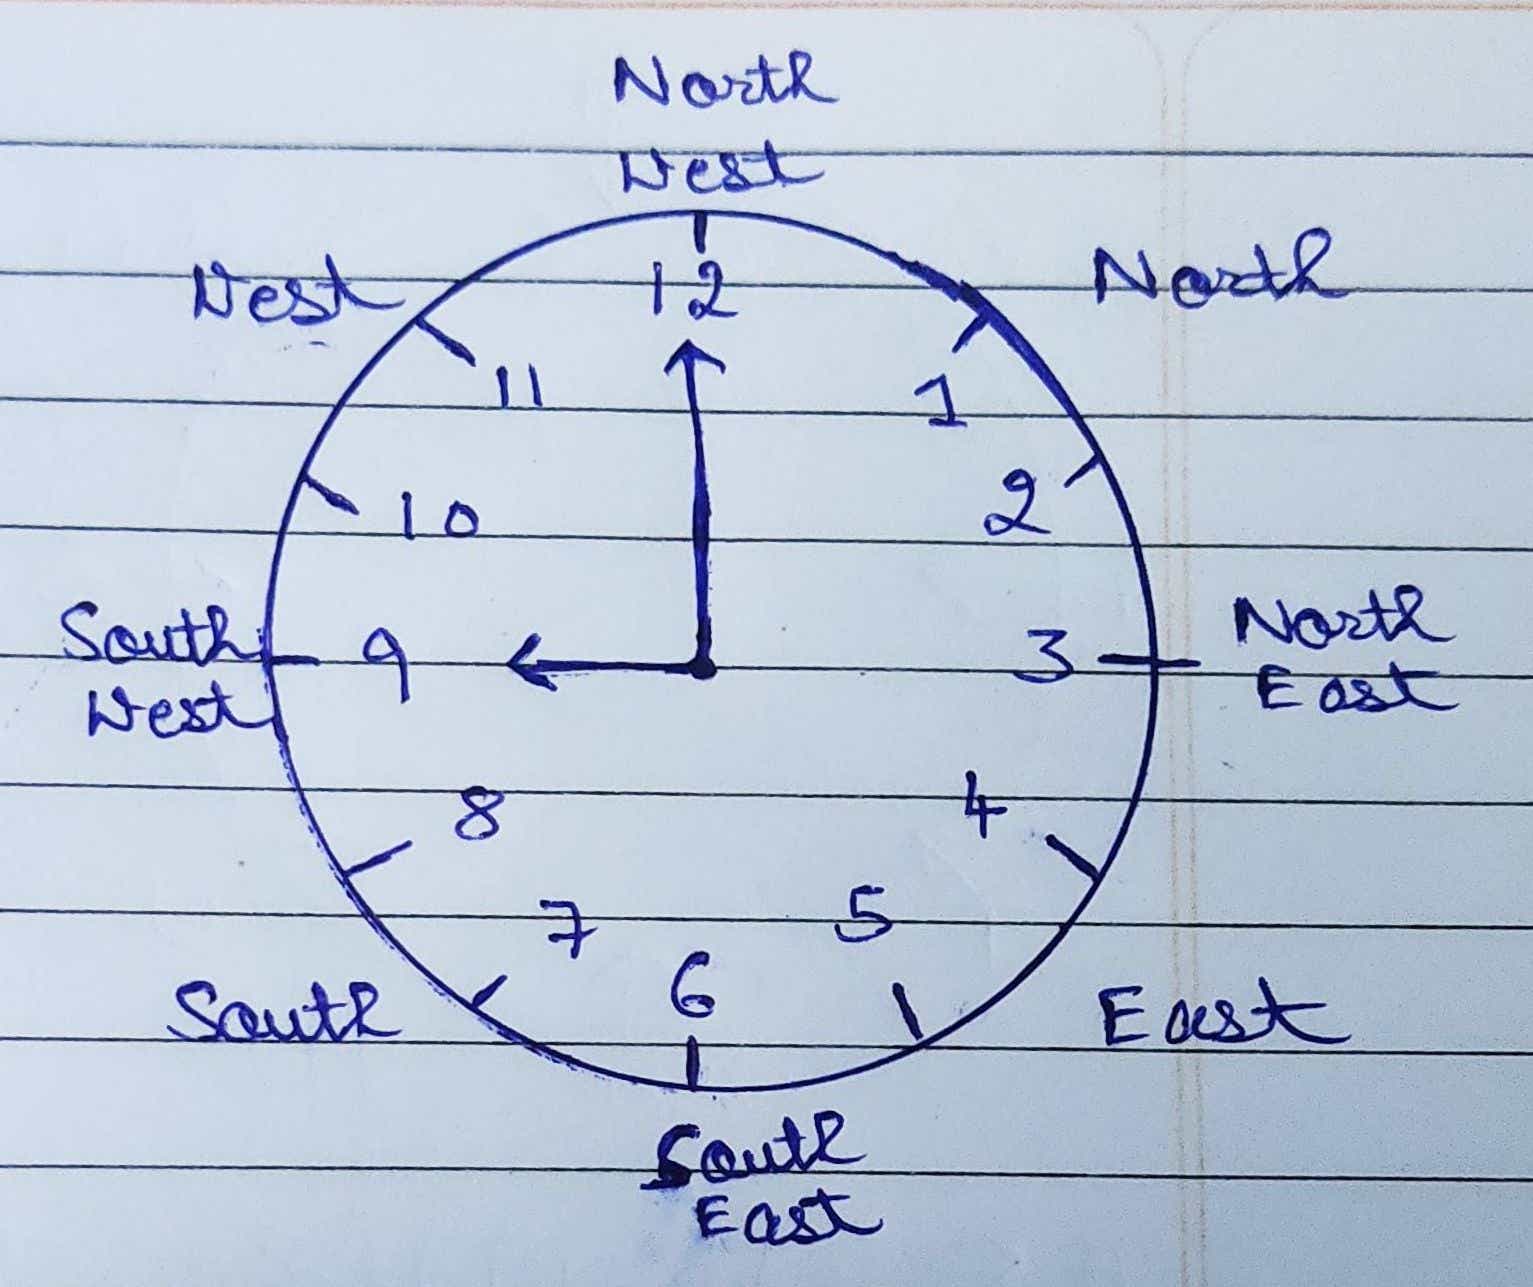 North
West
West
North
12
11
1
10
2
South
West
9
3
North
East
8
4
7
5
6
South
East
South
East